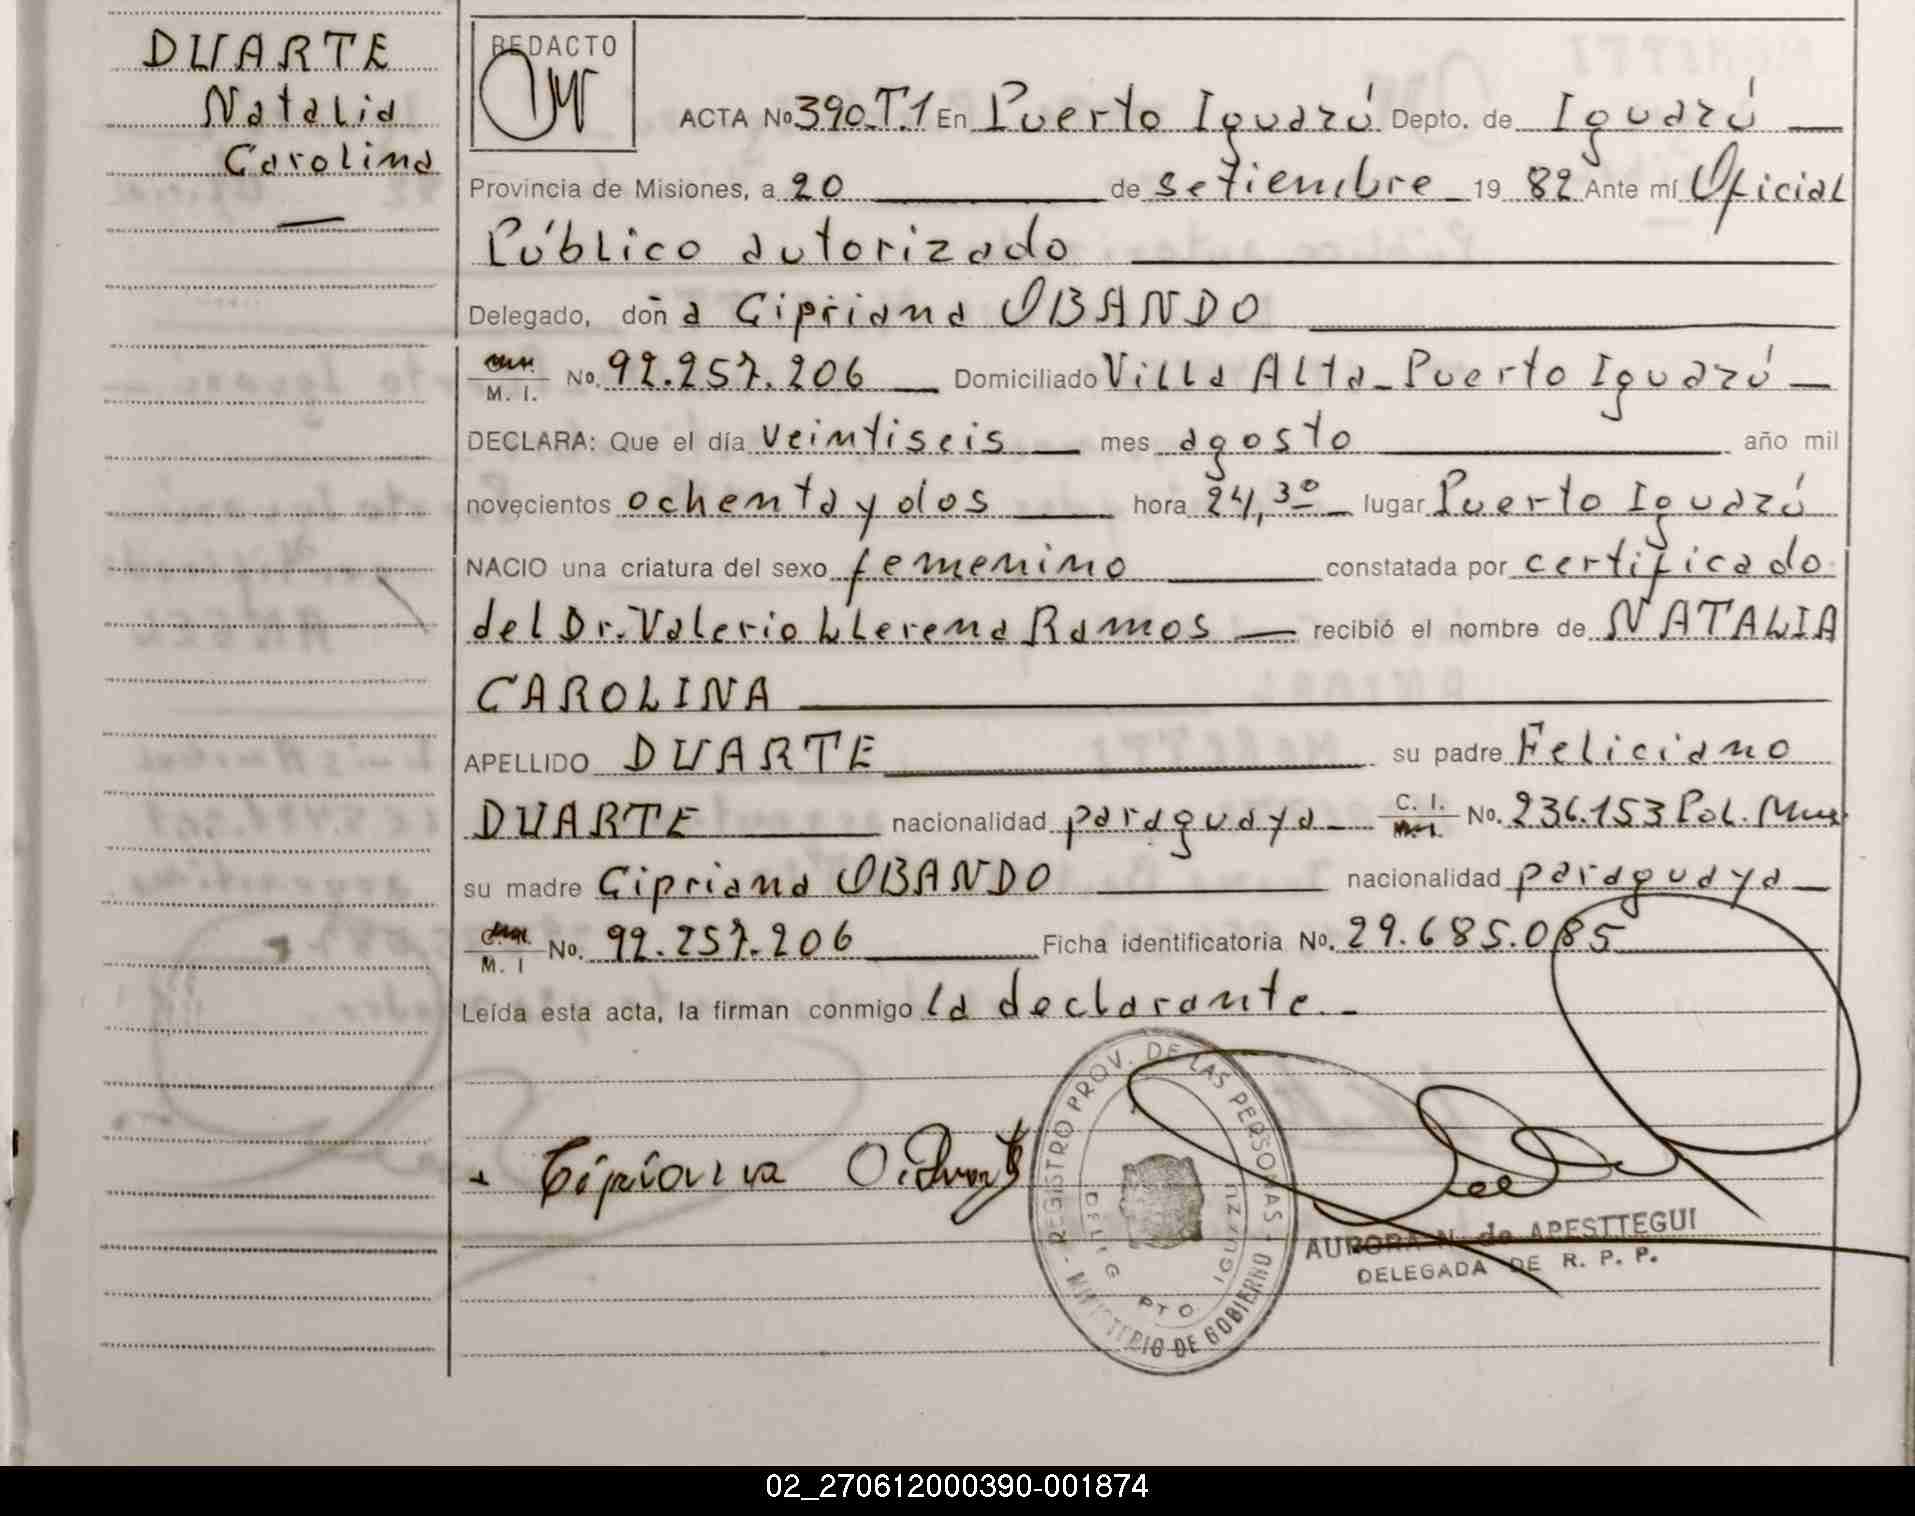 DUARTE
Natalia
Carolina
REDACTO
ACTA No 390.T.1 En Puerto Iguazú Depto. de Iguazú
Provincia de Misiones, a 20 de setiembre 19 82 Ante mí Oficial
Público autorizado
Delegado, doña Cipriana OBANDO
M. I. No. 92.257.206 Domiciliado Villa Alta - Puerto Iguazú
DECLARA: Que el día veintiseis mes agosto año mil
novecientos ochenta y dos hora 24,30 lugar Puerto Iguazú
NACIO una criatura del sexo femenino constatada por certificado
del Dr. Valerio Llerena Ramos recibió el nombre de NATALIA
CAROLINA
APELLIDO DUARTE su padre Feliciano
DUARTE nacionalidad paraguaya C. I. No. 236.153 Pol. Mnes
su madre Cipriana OBANDO nacionalidad paraguaya
M. I No. 92.257.206 Ficha identificatoria No. 29.685.085
Leída esta acta, la firman conmigo la declarante.
Cipriana O. Duarte
REGISTRO PROV. DE LAS PERSONAS - MINISTERIO DE GOBIERNO
DELEG PTO IGUAZU
AURORA N. de APESTTEGUI
DELEGADA DE R. P. P.
02_270612000390-001874